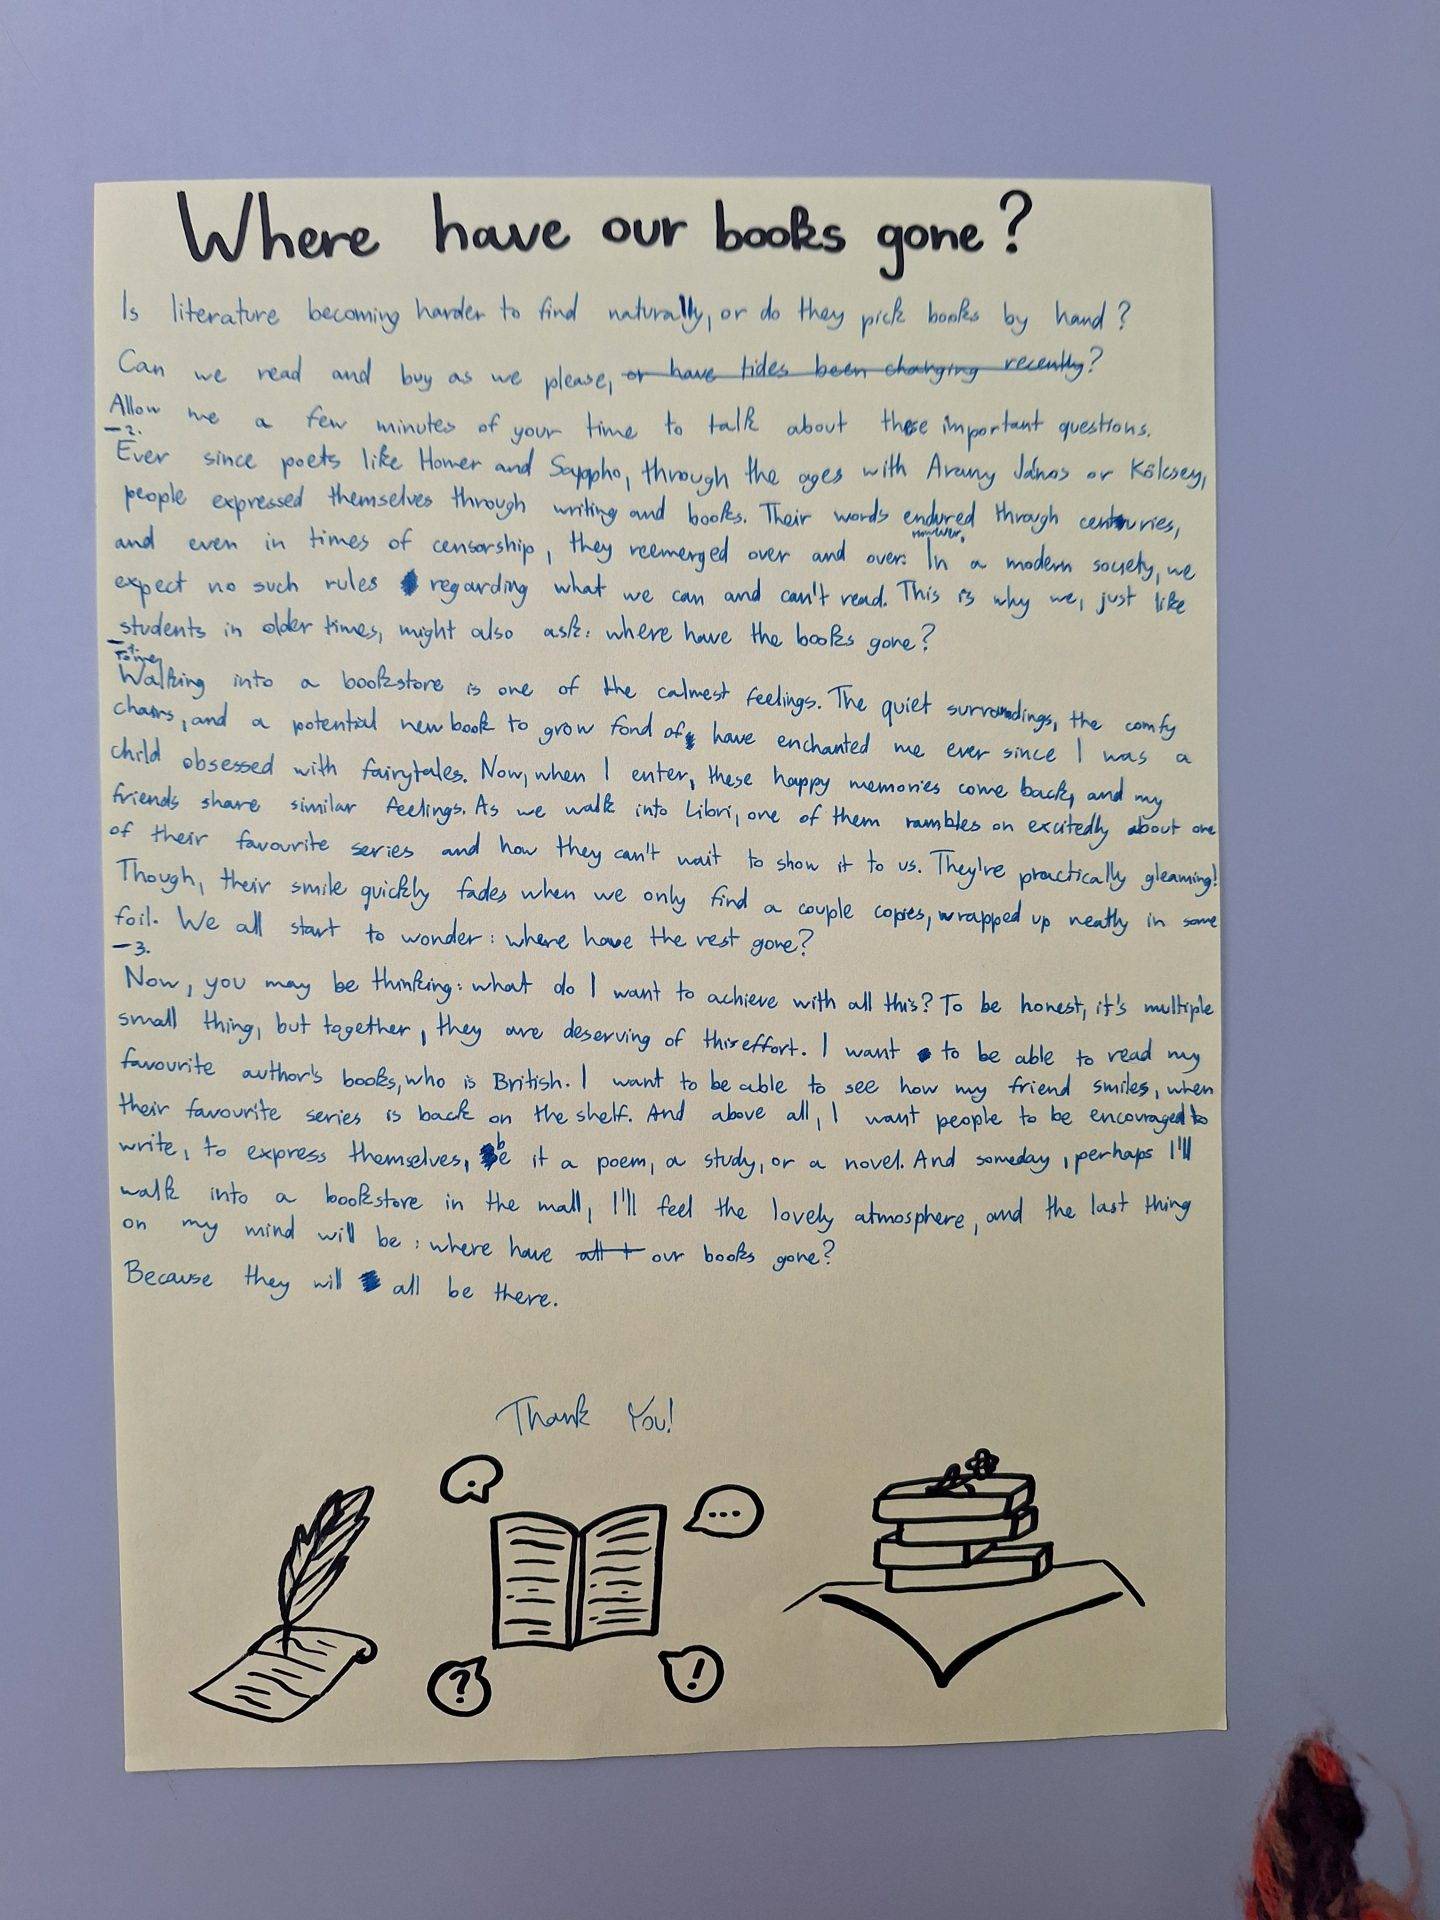 Where have our books gone?
Is literature becoming harder to find naturally, or do they pick books by hand?
Can we read and buy as we please, or have tides been changing recently?
Allow me a few minutes of your time to talk about these important questions.
-2.
Ever since poets like Homer and Sappho, through the ages with Arany János or Kölcsey,
people expressed themselves through writing and books. Their words endured through centuries,
and even in times of censorship, they reemerged over and over. In a modern society, we
expect no such rules regarding what we can and can't read. This is why we, just like
students in older times, might also ask: where have the books gone?
To me,
Walking into a bookstore is one of the calmest feelings. The quiet surroundings, the comfy
chairs, and a potential new book to grow fond of, have enchanted me ever since I was a
child obsessed with fairytales. Now, when I enter, these happy memories come back, and my
friends share similar feelings. As we walk into Libri, one of them rambles on excitedly about one
of their favourite series and how they can't wait to show it to us. They're practically gleaming!
Though, their smile quickly fades when we only find a couple copies, wrapped up neatly in some
foil. We all start to wonder: where have the rest gone?
-3.
Now, you may be thinking: what do I want to achieve with all this? To be honest, it's multiple
small thing, but together, they are deserving of this effort. I want to be able to read my
favourite author's books, who is British. I want to be able to see how my friend smiles, when
their favourite series is back on the shelf. And above all, I want people to be encouraged to
write, to express themselves, be it a poem, a study, or a novel. And someday, perhaps I'll
walk into a bookstore in the mall, I'll feel the lovely atmosphere, and the last thing
on my mind will be: where have all t our books gone?
Because they will all be there.
Thank You!
...
?
!